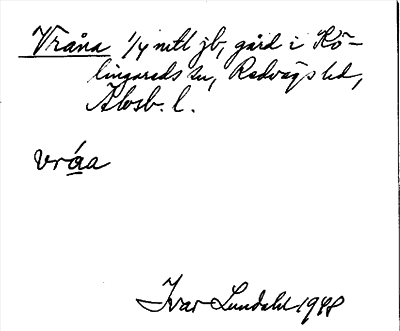 Vråna 1/4 mtl jb, gård i Kö-
lingareds sn, Redvägs hd,
Älvsb. l.
vråa
Ivar Lundahl 1948